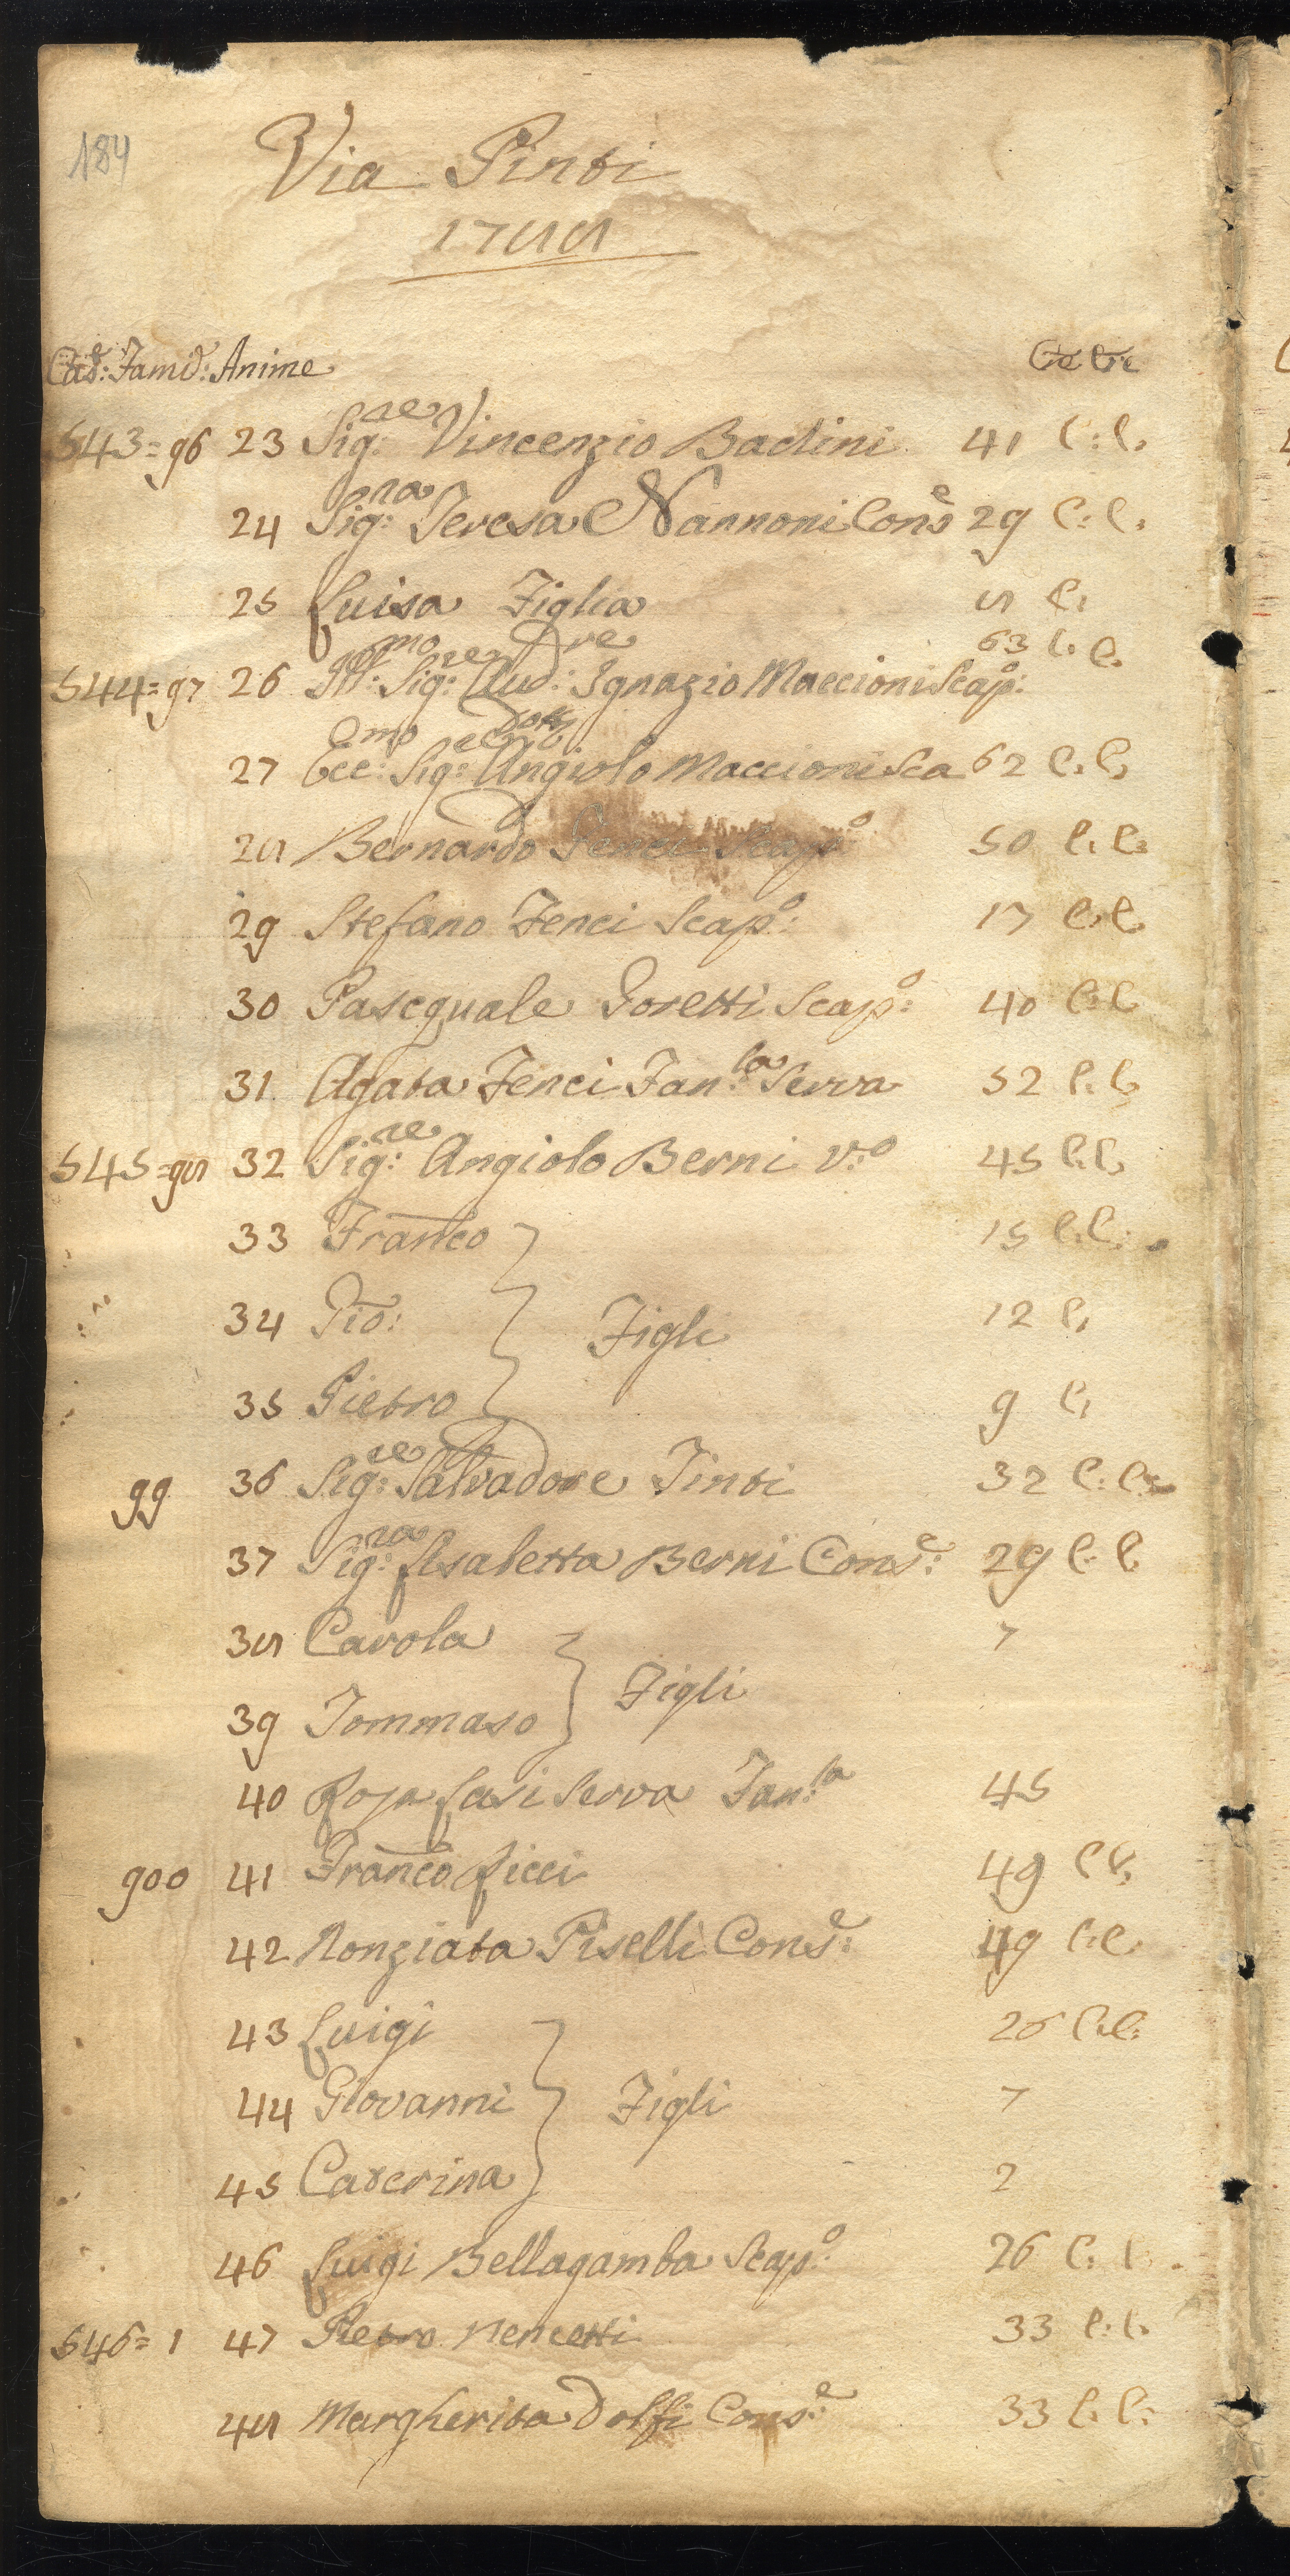 184
Via Pinti
1788
Case: Famie: Anime Età C:e
543=96 23 Sig:re Vincenzio Badini 41 C:C.
24 Sig:ra Teresa Nannoni Conse 29 C:C:
25 Luisa Figlia 8 C:
544=97 26 Ill:mo Sig:re Aud:re Ignazio Maccioni Scapo: 63 C:C.
27 Ecc:mo Sig:re Dott: Angiolo Maccioni Sca 62 C.C.
28 Bernardo Fenci Scapo 50 C:C:
29 Stefano Fenci Scapo: 17 C.C.
30 Pascquale Goretti Scapo: 40 C:C
31. Agata Fenci Fan:la Serva 52 C:C.
545=98 32 Sig:re Angiolo Berni V:o 45 C:C.
33 Franco 15 C.C:
34 Gio: Figli 12 C.
35 Pietro 9 C.
99 36 Sig:re Salvadore Tinti 32 C:C:
37 Sig:ra Lisabetta Berni Conse: 29 C:C
38 Carola 7
39 Tommaso Figli
40 Rosa Lasi Serva Fan:la 45
900 41 Franco Ricci 49 C C.
42 Nonziata Piselli Conse: 49 C:C.
43 Luigi 26 C.C:
44 Giovanni Figli 7
45 Caterina 2
46 Luigi Bellagamba Scapo: 26 C: C
546=1 47 Pietro Nencetti 33 C:C.
48 Margherita Dolfi Conse: 33 C.C: